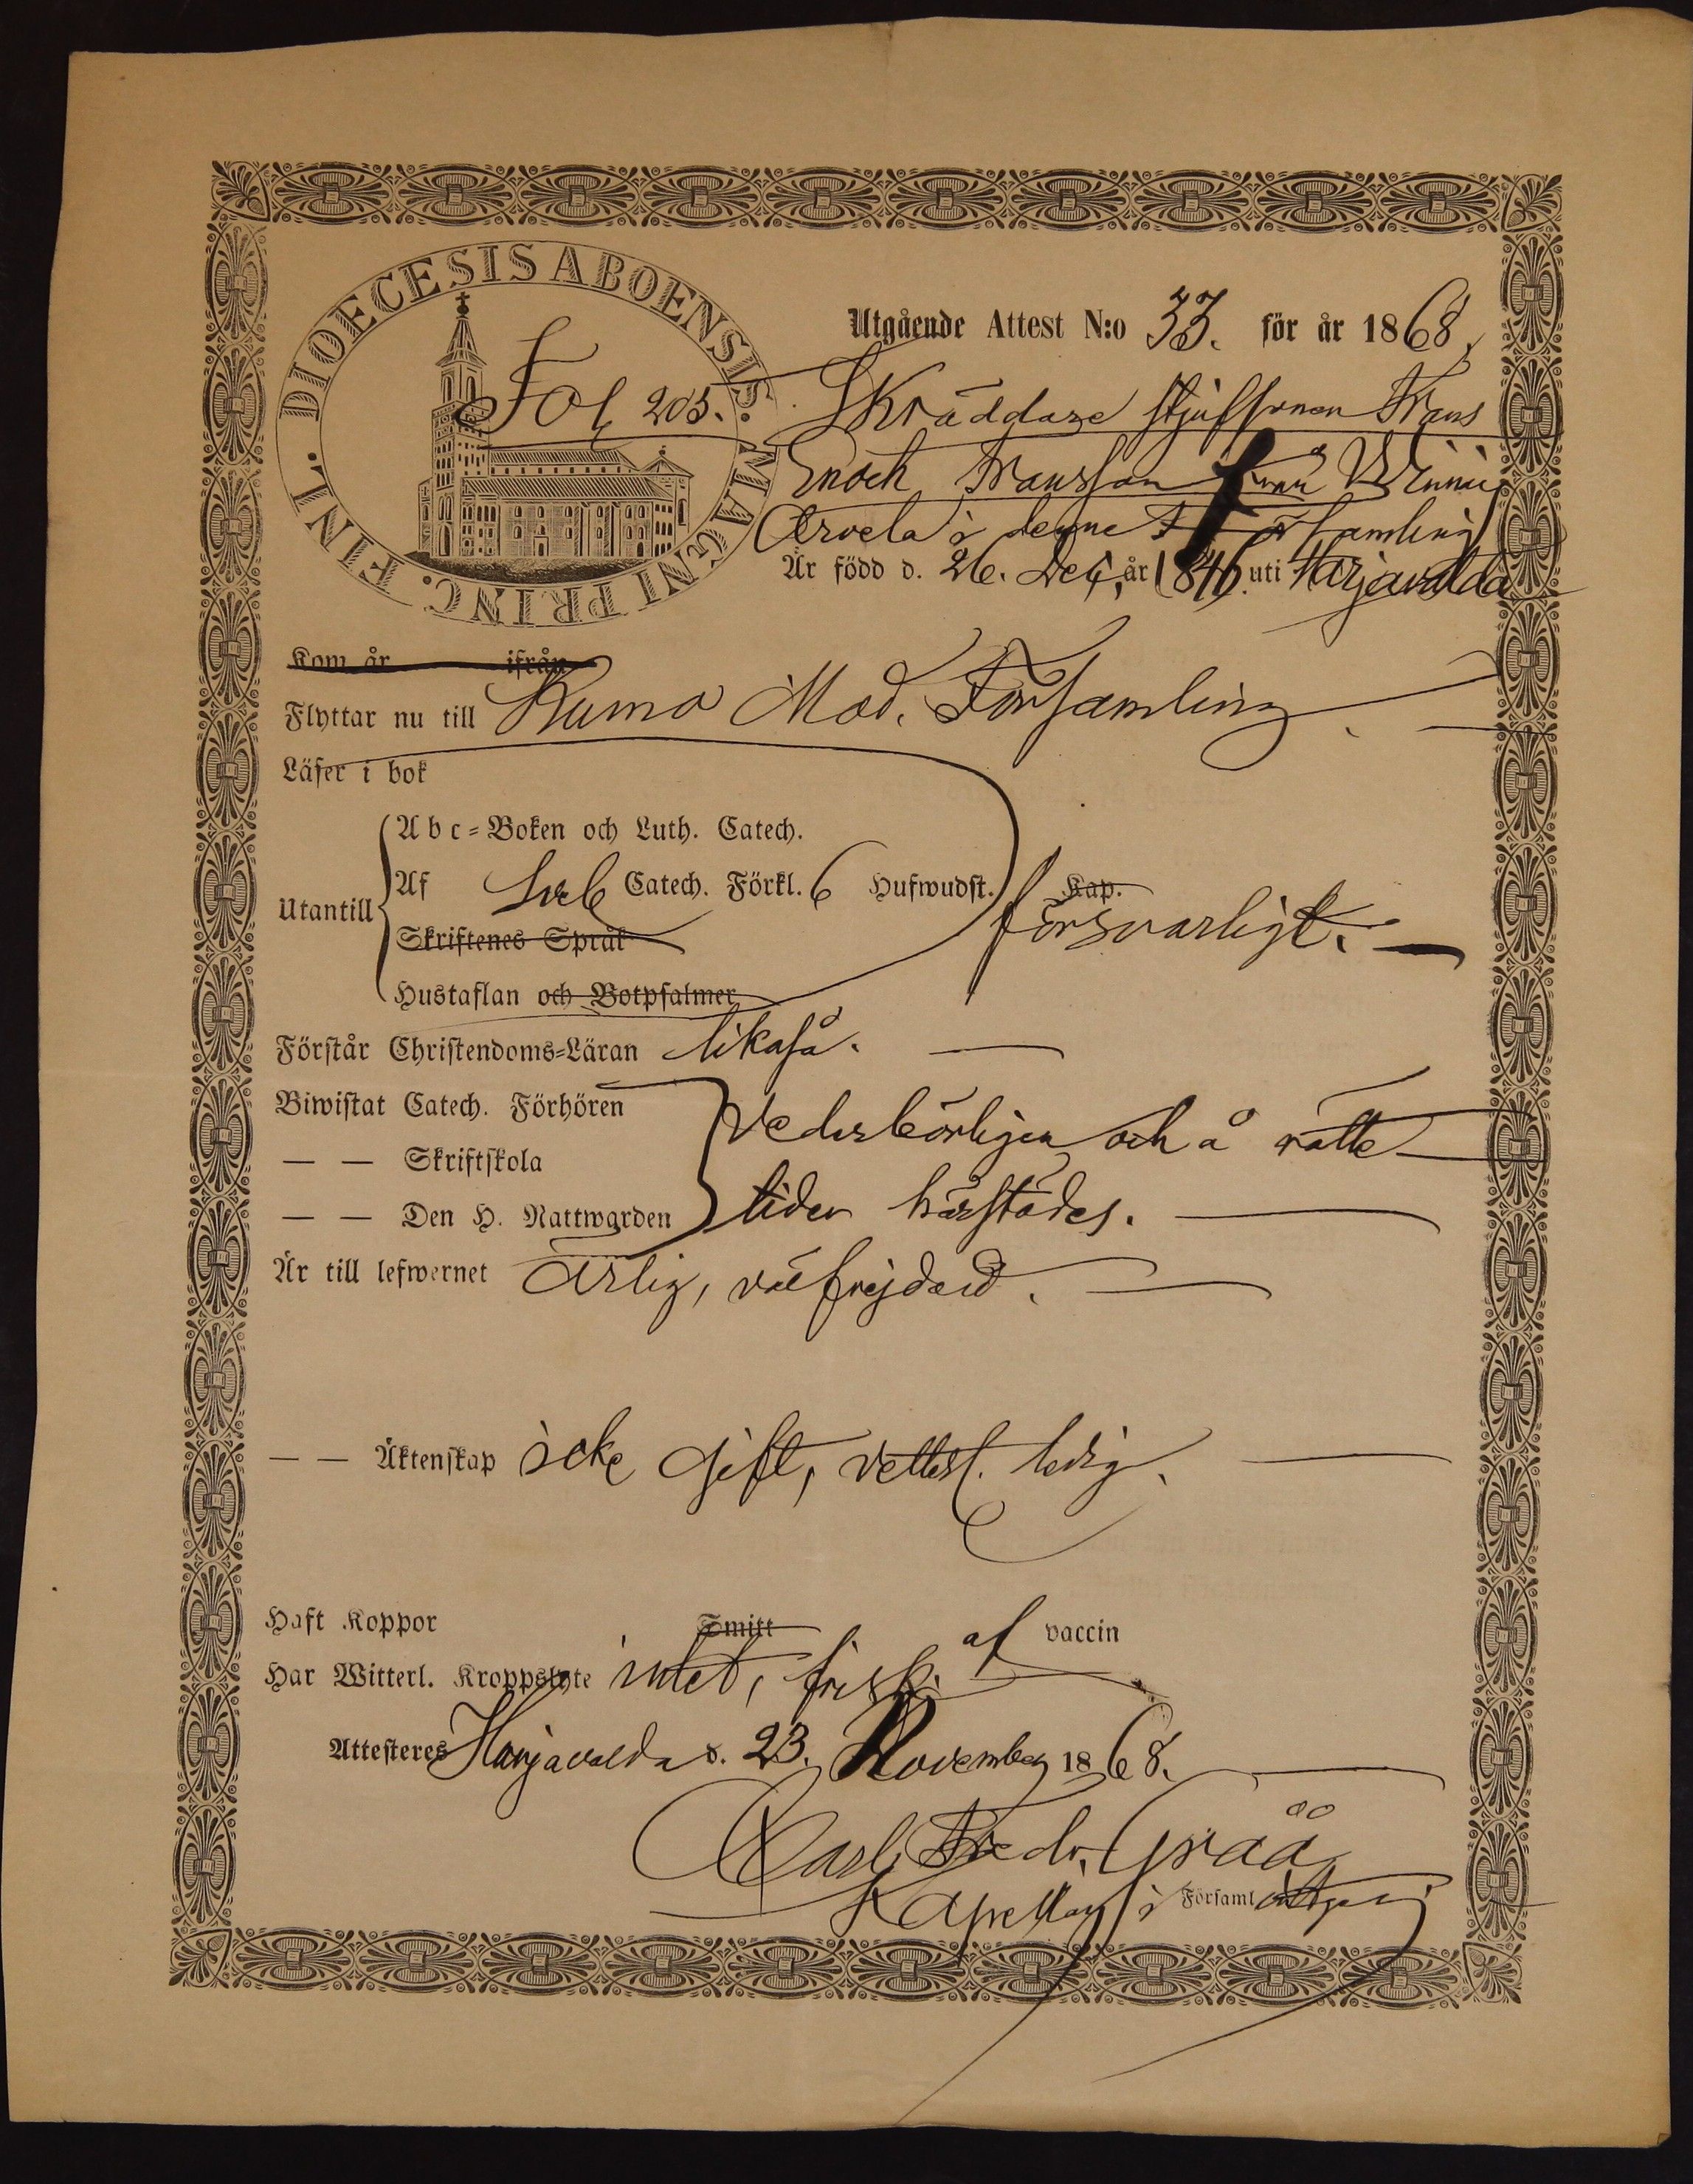 DIOECESIS ABOENSIS. MAGNI PRINC. FINL.
Fol 205.
Utgående Attest N:o 33. för år 1868,
Skräddare styfsonen Frans
Enoch Fransson från
Arvela i denne Församling
Är född d. 26. Dec, år 1846. uti Harjavalda
Kom år ifrån
Flyttar nu till Kumo Mod. Församling
Läser i bok
Abc=Boken och Luth. Catech.
Utantill Af Sveb Catech. Förkl. 6 Hufwudst. Kap. försvarligt.
Skriftenes Språk
Hustaflan och Botpsalmer
Förstår Christendoms=Läran likaså.
Biwistat Catech. Förhören Vederbörligen och å rätte
— — Skriftskola
— — Den H. Nattwarden tider härstädes.
Är till lefwernet ärlig, välfrejdad.
— — Äktenskap icke gift, vetterl. ledig.
Haft Koppor Smitt af vaccin
Har Witterl. Kroppslyte intet, frisk.
Attesteres Harjavalda d. 23. November 1868.
Carl Fredr. Grää
Kapellan i Församl